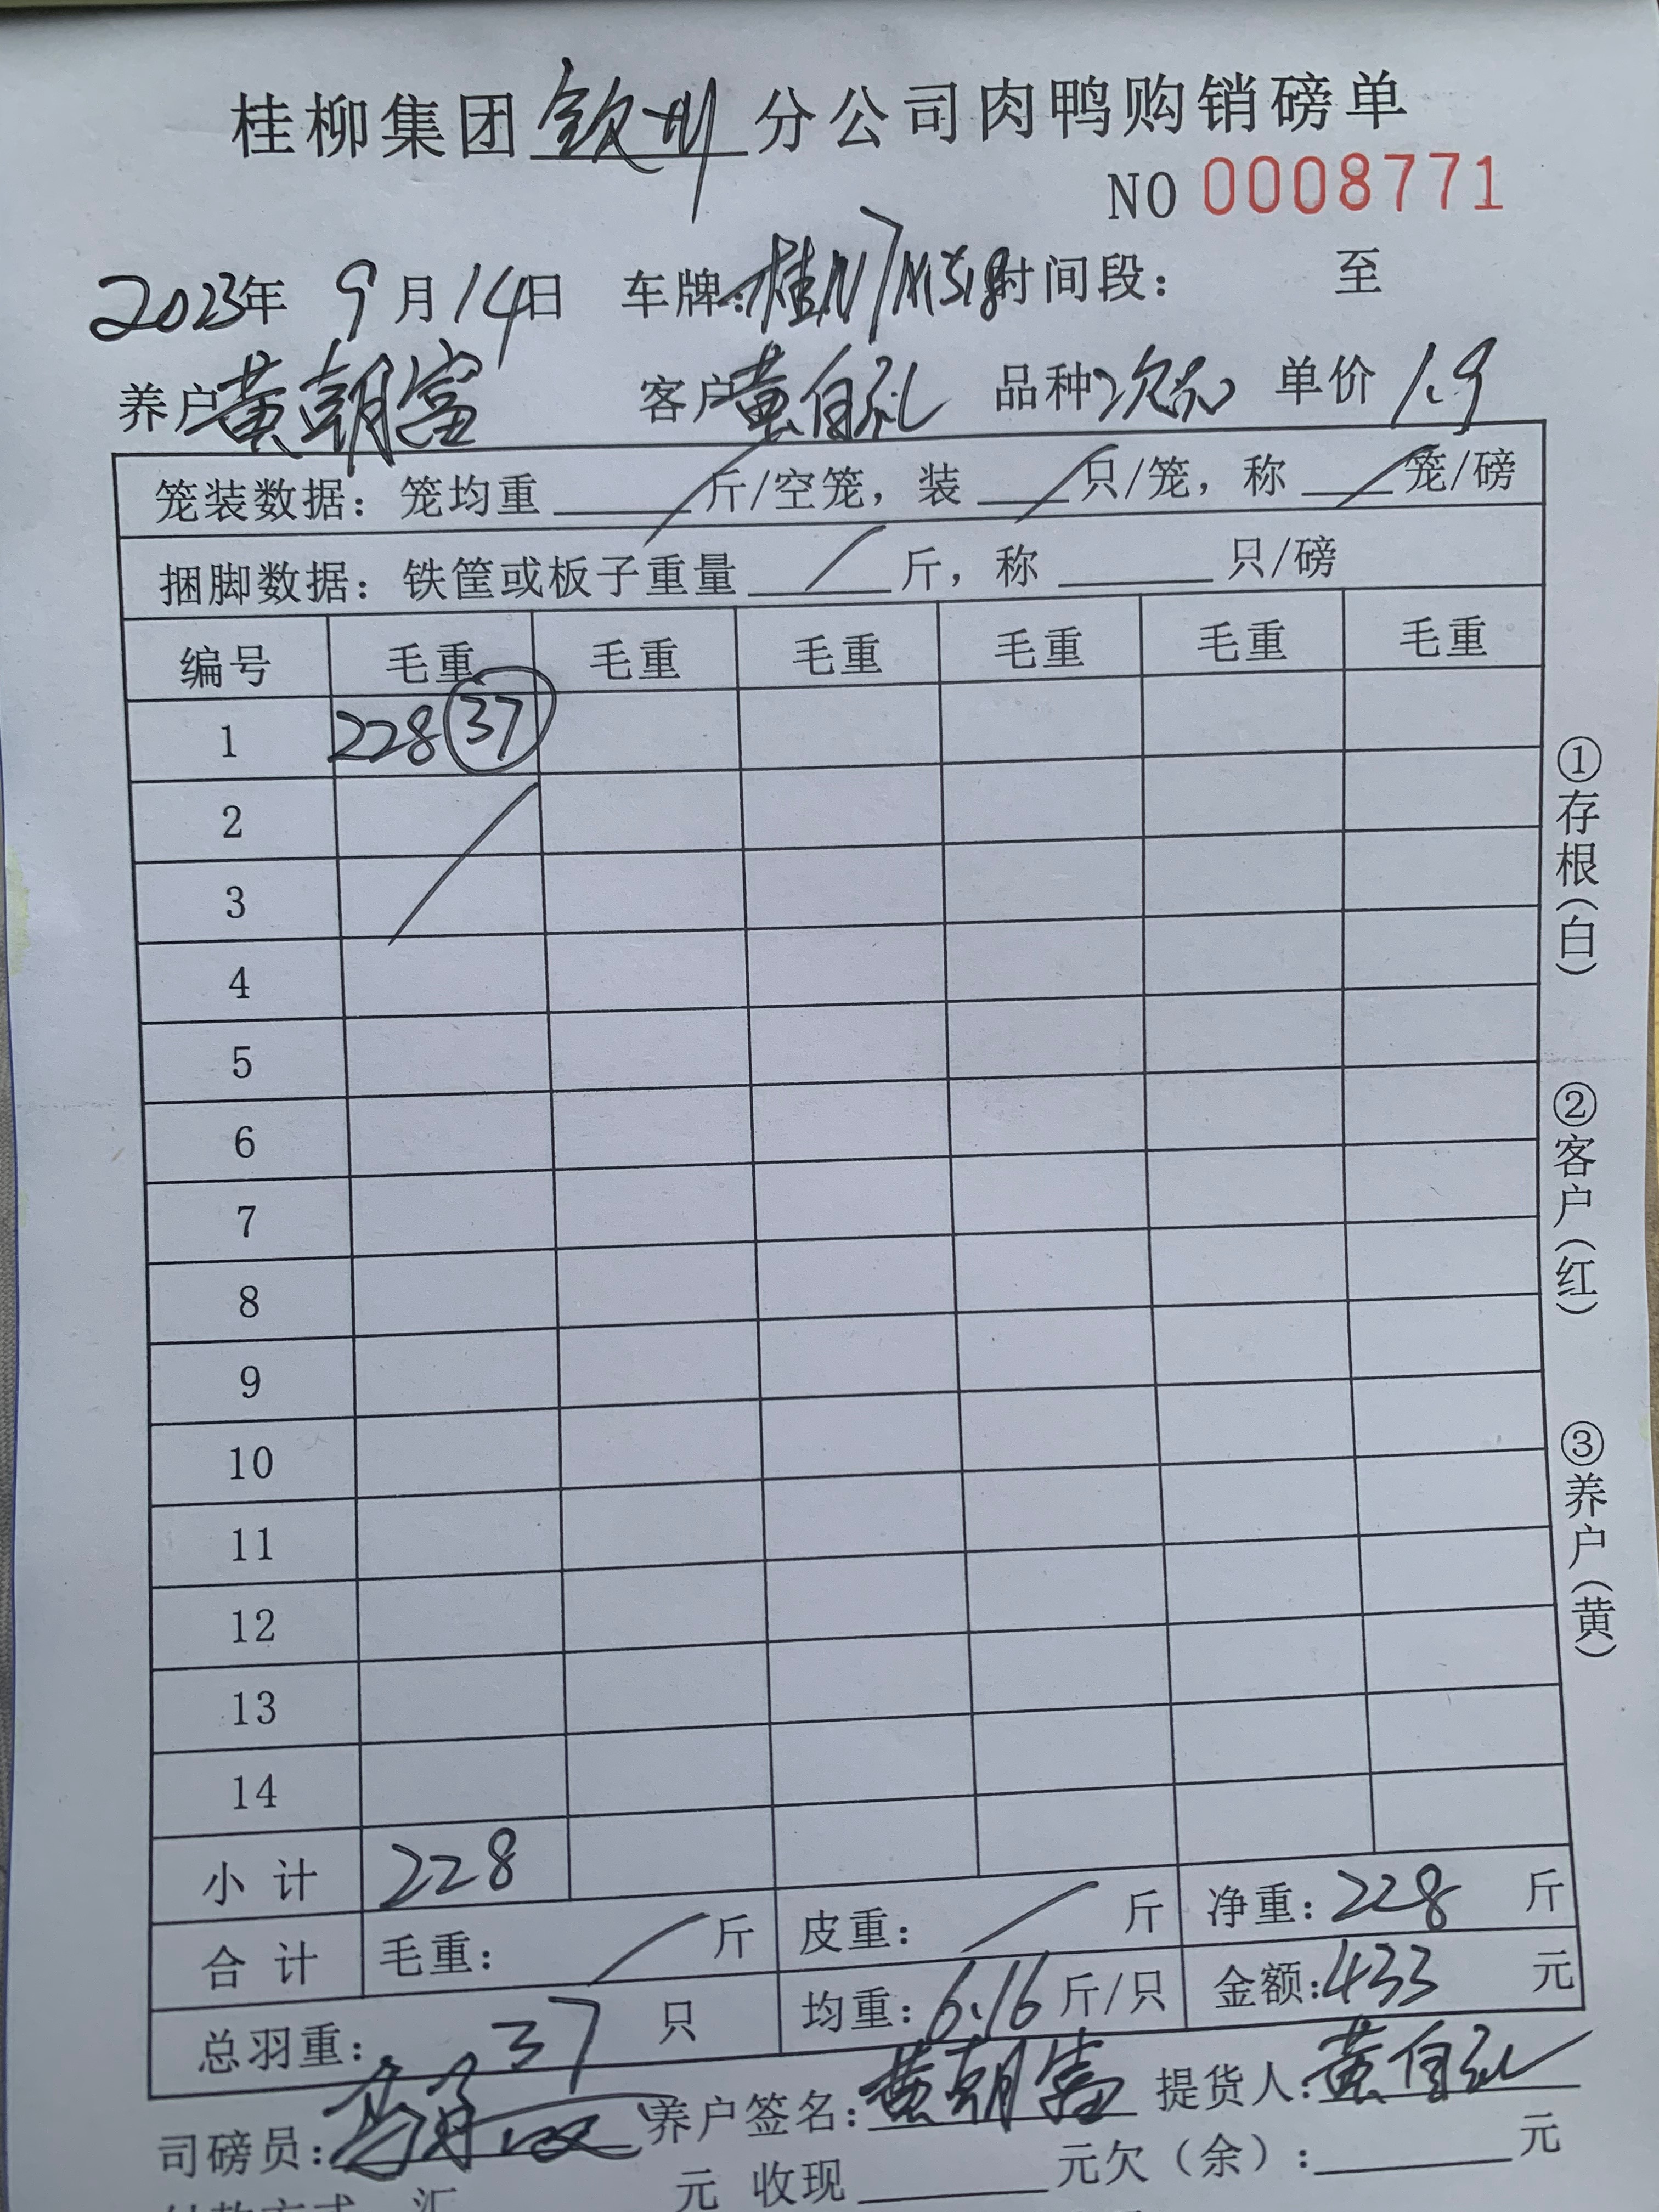 桂柳集团钦州分公司肉鸭购销磅单
NO 0008771
2023年 9月14日 车牌:桂N7M518时间段: 至
养户黄朝富 客户黄自礼 品种次 单价1.9
笼装数据: 笼均重 斤/空笼, 装 只/笼, 称 笼/磅
捆脚数据: 铁筐或板子重量 斤, 称 只/磅
编号 毛重 毛重 毛重 毛重 毛重 毛重
1 228 37
2
3
4
5
6
7
8
9
10
11
12
13
14
小计 228
合计 毛重: 斤 皮重: 斤 净重: 228 斤
总羽重: 37 只 均重: 6.16 斤/只 金额: 433 元
司磅员: 养户签名: 黄朝富 提货人: 黄自礼
元 收现 元欠(余): 元
①存根(白)
②客户(红)
③养户(黄)